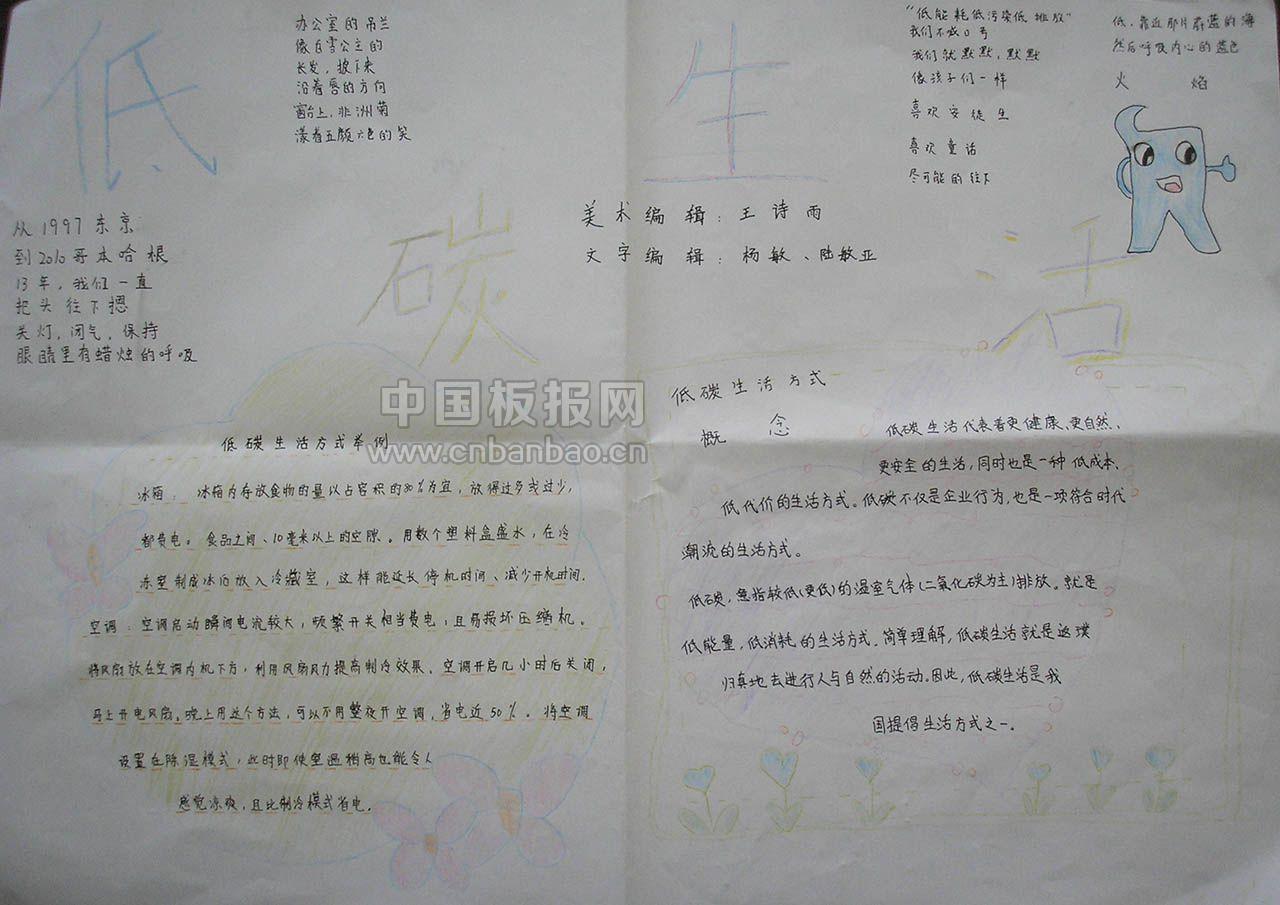 低
碳
生
活
办公室的吊兰
像白雪公主的
长发，披下来
沿着唇的方向
窗台上，非洲菊
漾着五颜六色的笑
从1997东京
到2010哥本哈根
13年，我们一直
把头往下摁
关灯，闭气，保持
眼睛里有蜡烛的呼吸
“低能耗低污染低排放”
我们不喊口号
我们就默默，默默
像孩子们一样
喜欢安徒生
喜欢童话
尽可能的往下
低，靠近那片蔚蓝的海
然后呼吸内心的蓝色
火焰
美术编辑：王诗雨
文字编辑：杨敏、陆敏亚
中国板报网
www.cnbanbao.cn
低碳生活方式举例
冰箱：冰箱内存放食物的量以占容积的80%为宜，放得过多或过少，
都费电。食品之间、10毫米以上的空隙。用数个塑料盒盛水，在冷
冻室制成冰后放入冷藏室，这样能延长停机时间、减少开机时间.
空调：空调启动瞬间电流较大，频繁开关相当费电，且易损坏压缩机。
将风扇放在空调内机下方，利用风扇风力提高制冷效果。空调开启几小时后关闭，
马上开电风扇。晚上用这个方法，可以不用整夜开空调，省电近50%。将空调
设置在除湿模式，此时即使室温稍高也能令人
感觉凉爽，且比制冷模式省电。
低碳生活方式
概念
低碳生活代表着更健康、更自然、
更安全的生活，同时也是一种低成本、
低代价的生活方式。低碳不仅是企业行为，也是一项符合时代
潮流的生活方式。
低碳，意指较低(更低)的温室气体(二氧化碳为主)排放。就是
低能量，低消耗的生活方式。简单理解，低碳生活就是返璞
归真地去进行人与自然的活动。因此，低碳生活是我
国提倡生活方式之一.